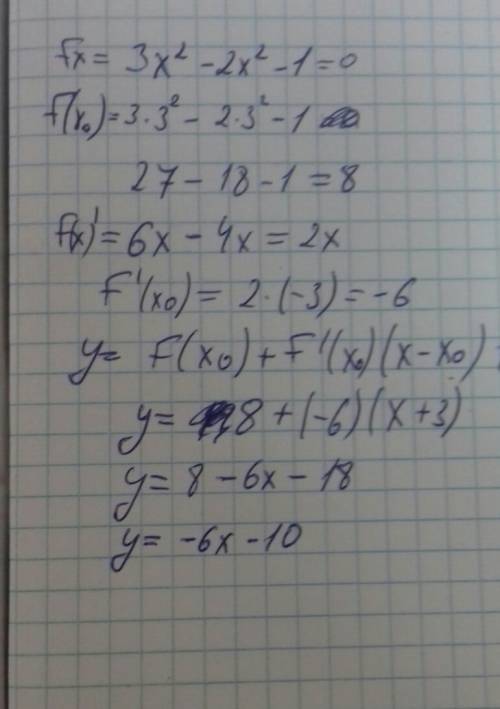 fx = 3x² - 2x² - 1 = 0
f(x₀) = 3·3² - 2·3² - 1
27 - 18 - 1 = 8
f(x)' = 6x - 4x = 2x
F'(x₀) = 2·(-3) = -6
y = F(x₀) + F'(x₀)(x - x₀)
y = 8 + (-6)(x + 3)
y = 8 - 6x - 18
y = -6x - 10